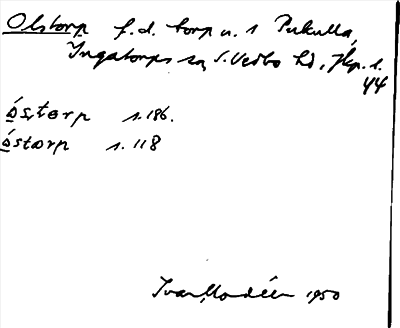 Olstorp f.d. torp u. 1 Pukulla,
Ingatorps sn, S. Vedbo hd, Jkp. l.
44
ó̱stɵrp s. 186.
ó̱stɵrp s. 118
Ivar Modéer 1950